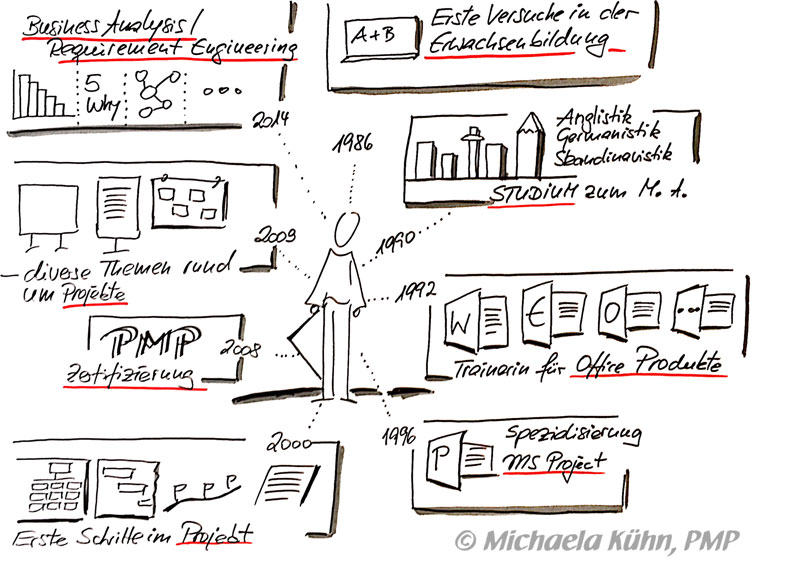 Business Analysis/
Requirement Engineering
5
Why
2014
A+B
Erste Versuche in der
Erwachsenbildung
1986
Anglistik
Germanistik
Skandinavistik
STUDIUM zum M. A.
1990
1992
W
E
O
Trainerin für Office Produkte
1996
P
Spezialisierung
MS Project
2000
Erste Schritte im Projekt
P P P
2008
PMP
Zertifizierung
2009
– diverse Themen rund
um Projekte
© Michaela Kühn, PMP